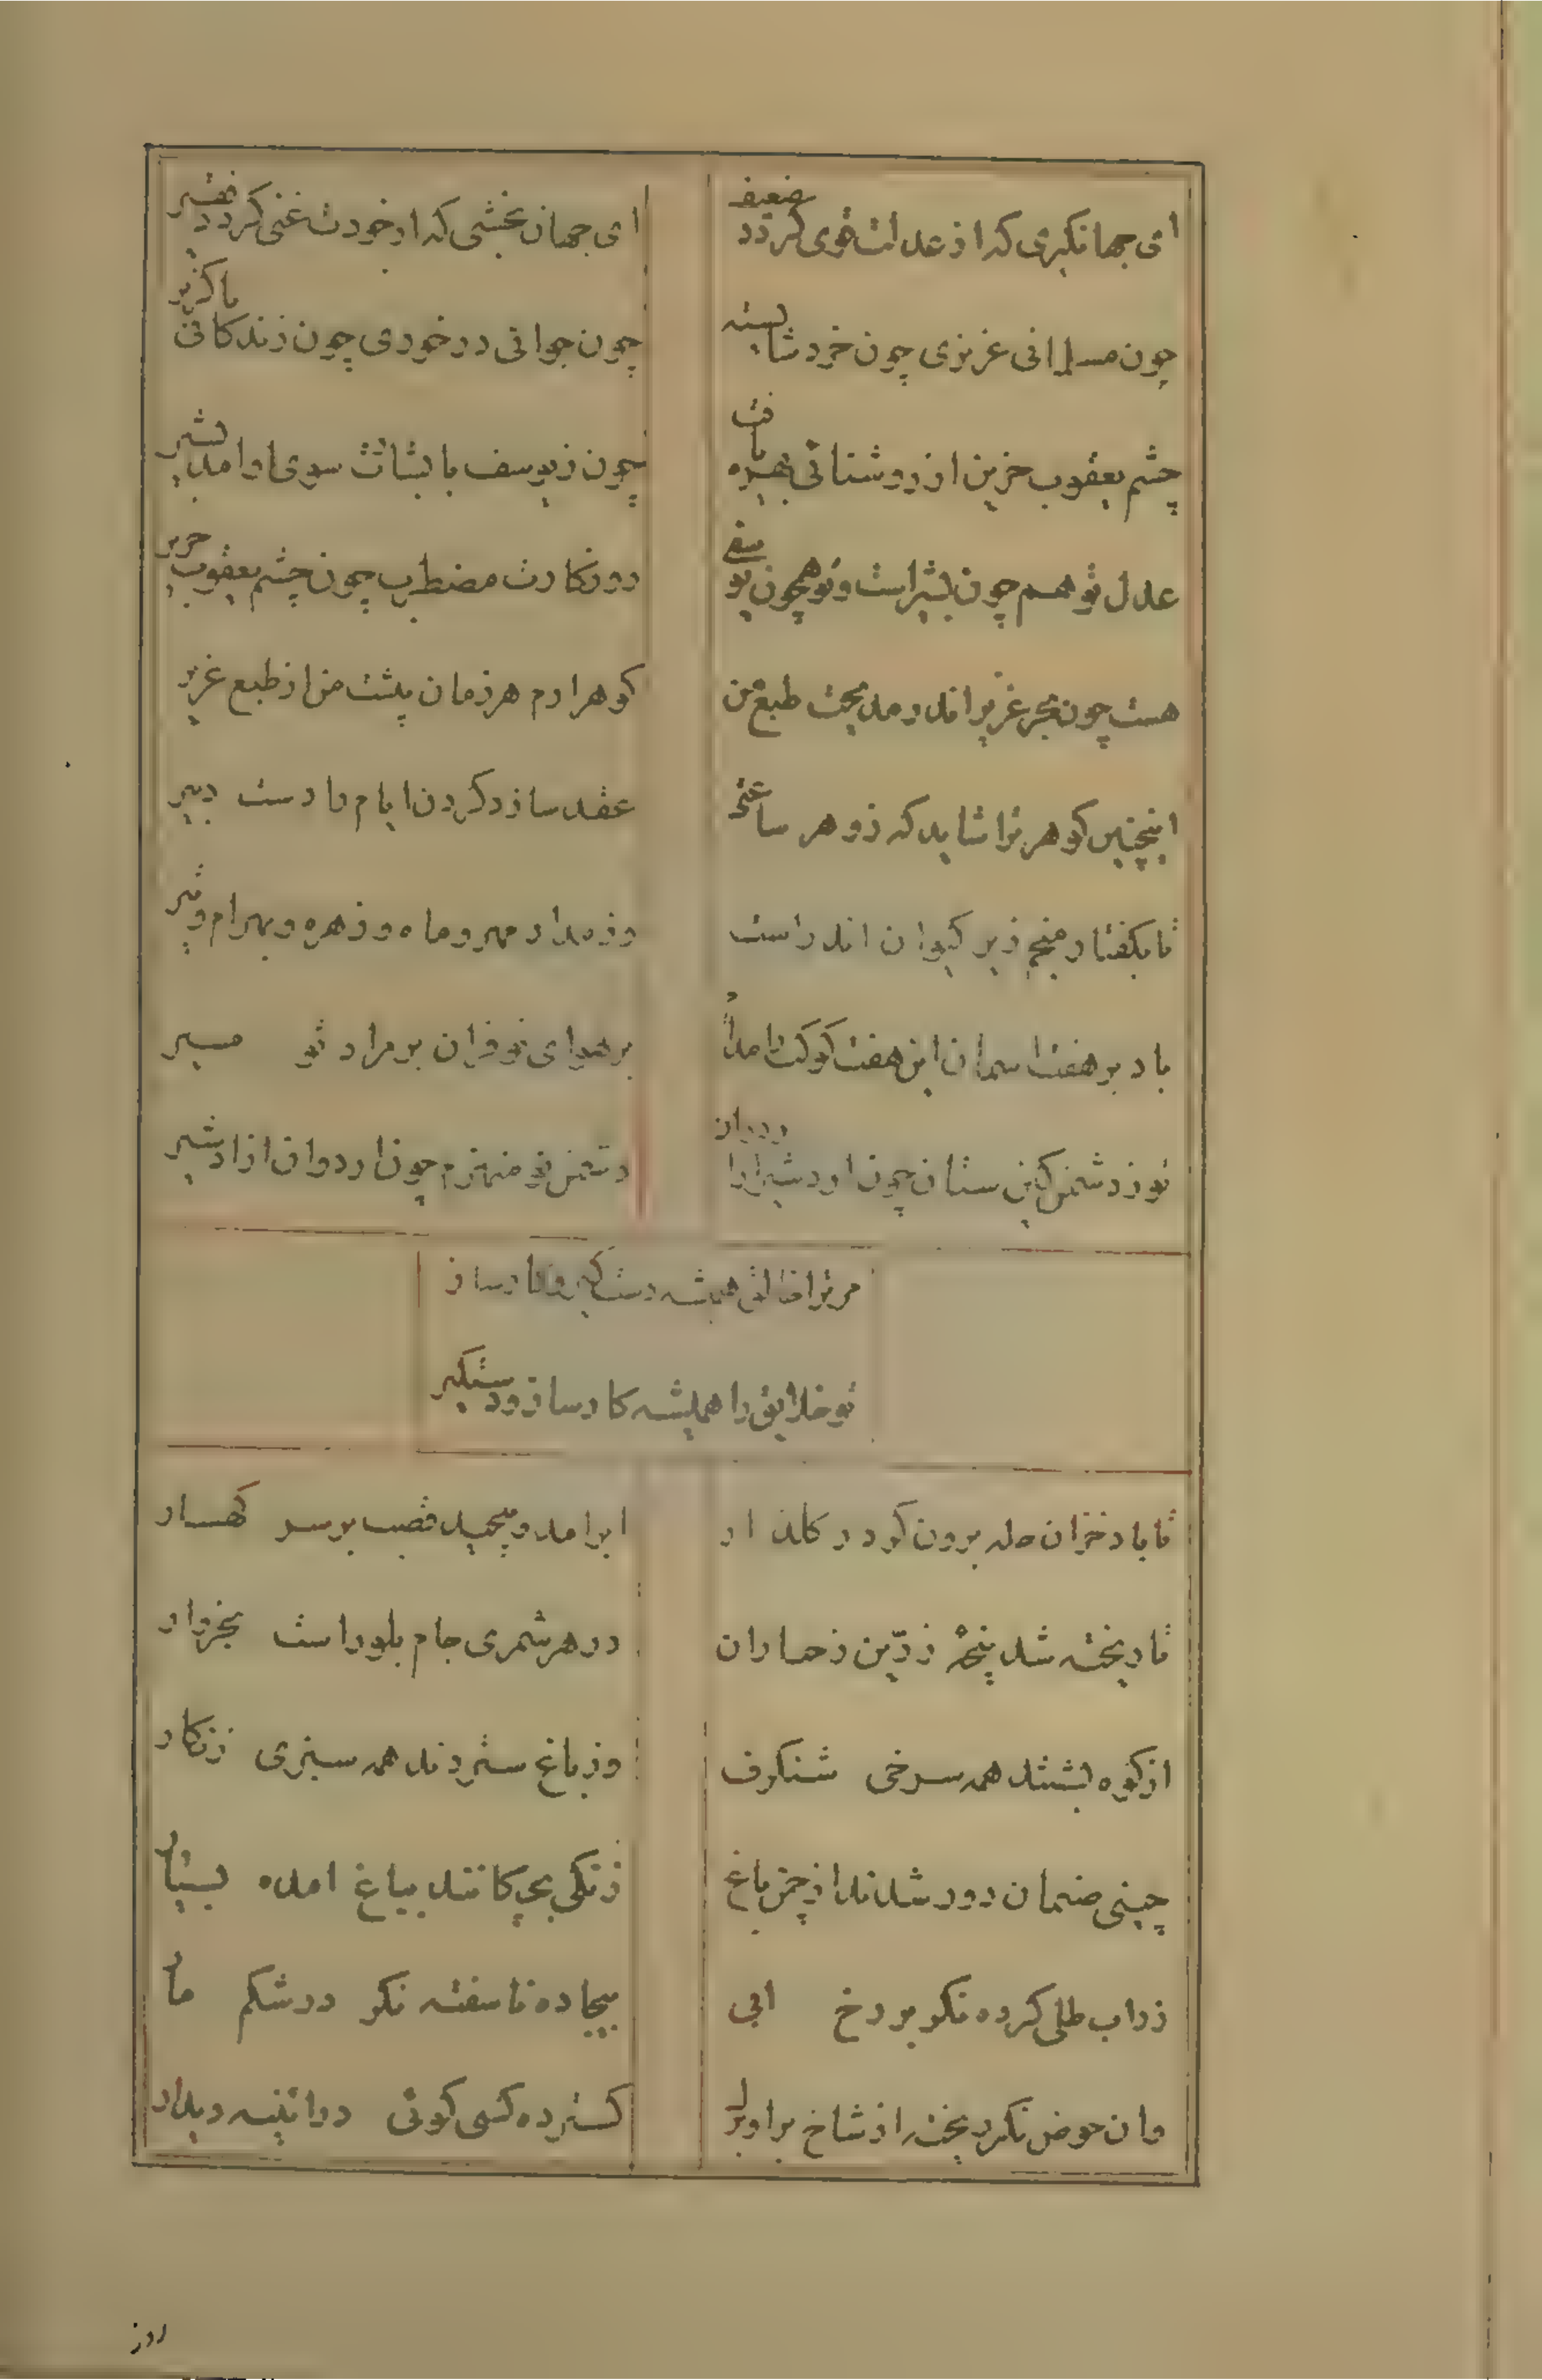 ای جهانکیری که از عدلت قوی کردد ضعیف
ای جهان بخشی که از خودت غنی کردد فقیر
چون مسلمانی عزیزی چون خرد شایسته
چون جوانی در خودی چون زندکانی ناکزیر
چشم یعقوب حزین از روشنائی بهره یافت
چون ز یوسف با بشاتت سوی او امد بشیر
عدل تو هم چون بشیر است و تو همچون یوسفی
روزکارت مضطرب چون چشم یعقوب حزیر
هست چون بحر غزیر اندر مدیحت طبع من
کوهر ارم هر زمان پیشت من از طبع غزیر
اینچنین کوهر ترا شاید که زو هر ساعتی
عقد سازد کردن ایام با دست دبیر
تا بکفتار منجم زیر کیوان اندر است
وز مدار مهر و ماه و زهره و بهرام و تیر
باد بر هفت اسمان این هفت کوکب را مدام
بر هوای تو قران بر مراد تو مسیر
تو ز دشمن کین ستان چون اردشیر از اردوان
دشمن تو منهزم چون اردوان از اردشیر
مر ترا خالق همیشه دستکیر و کارساز
تو خلایق را همیشه کارساز و دستکیر
تا باد خزان حله برون کرد ز کلذار
ابر امد و پیچید قصب بر سر کهسار
تا ریخته شد پنجهٔ زرّین ز چناران
در هر شمری جام بلور است بخروار
از کوه بشستند همه سرخی شنکرف
وز باغ ستردند همه سبزی زنکار
چینی صنمان دور شدند از چمن باغ
زنکی بچکانند بباغ امده بسیار
زر اب طلی کرده نکو بر رخ ابی
بیجاده ناسفته نکر در شکم نار
وان حوض نکر ریخته از شاخ بر او بر
کسترده کسی کوئی در ائینه دینار
روز